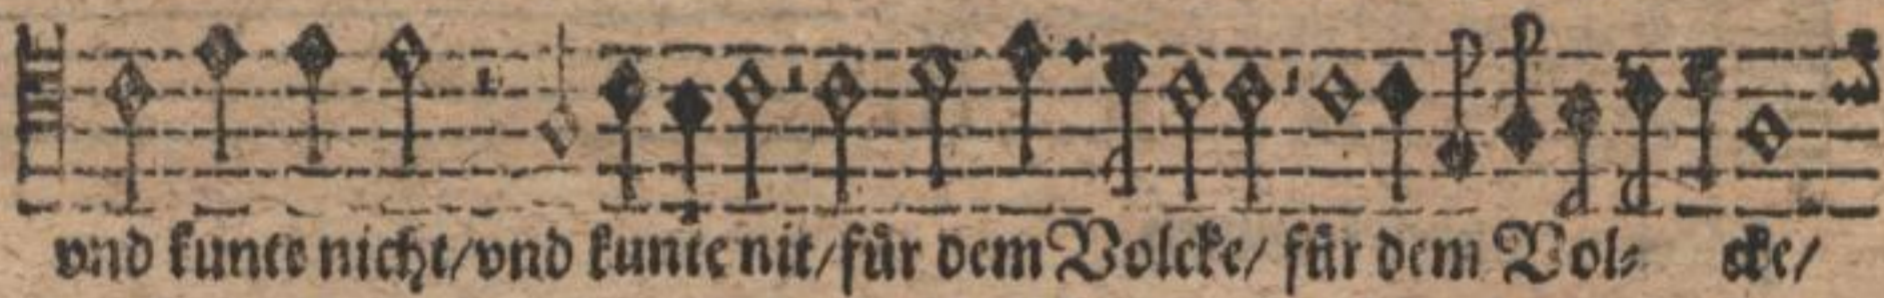 vnd kunte nicht/vnd kunte nit/für dem Volcke/ für dem Vol⸗ cke/